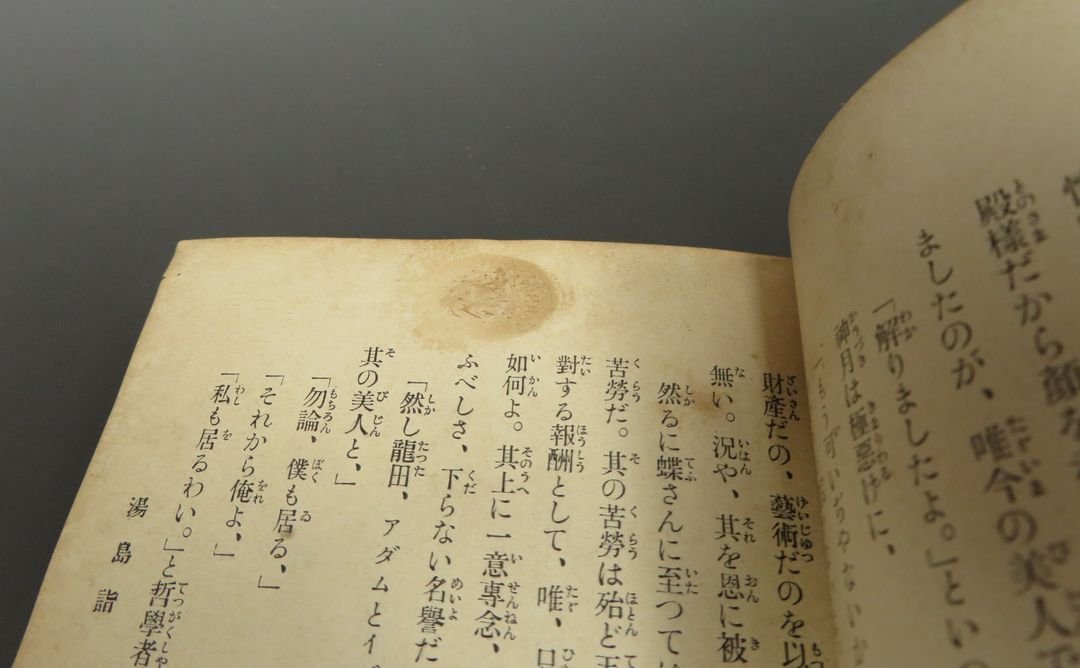 殿様だから顔を
ましたのが、唯今の美人で
「解りましたよ。」とい
神月は極惡けに、
財産だの、藝術だのを以
無い。況や、其を恩に被
然るに蝶さんに至つては
苦勞だ。其の苦勞は殆ど
對する報酬として、唯、
如何よ。其上に一意專念、
ふべしさ、下らない名譽だ
「然し龍田、アダムとイ
其の美人と、」
「勿論、僕も居る、」
「それから俺よ、」
「私も居るわい。」と哲學者
湯島詣